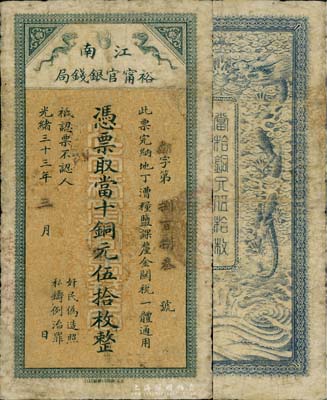 江南
裕甯官銀錢局
此票完納地丁漕糧鹽課釐金關稅一體通用
字第捌百捌叁號
憑票取當十銅元伍拾枚整
祗認票不認人
光緒三十三年三月日
奸民偽造照
私鑄例治罪
當拾銅元伍拾枚